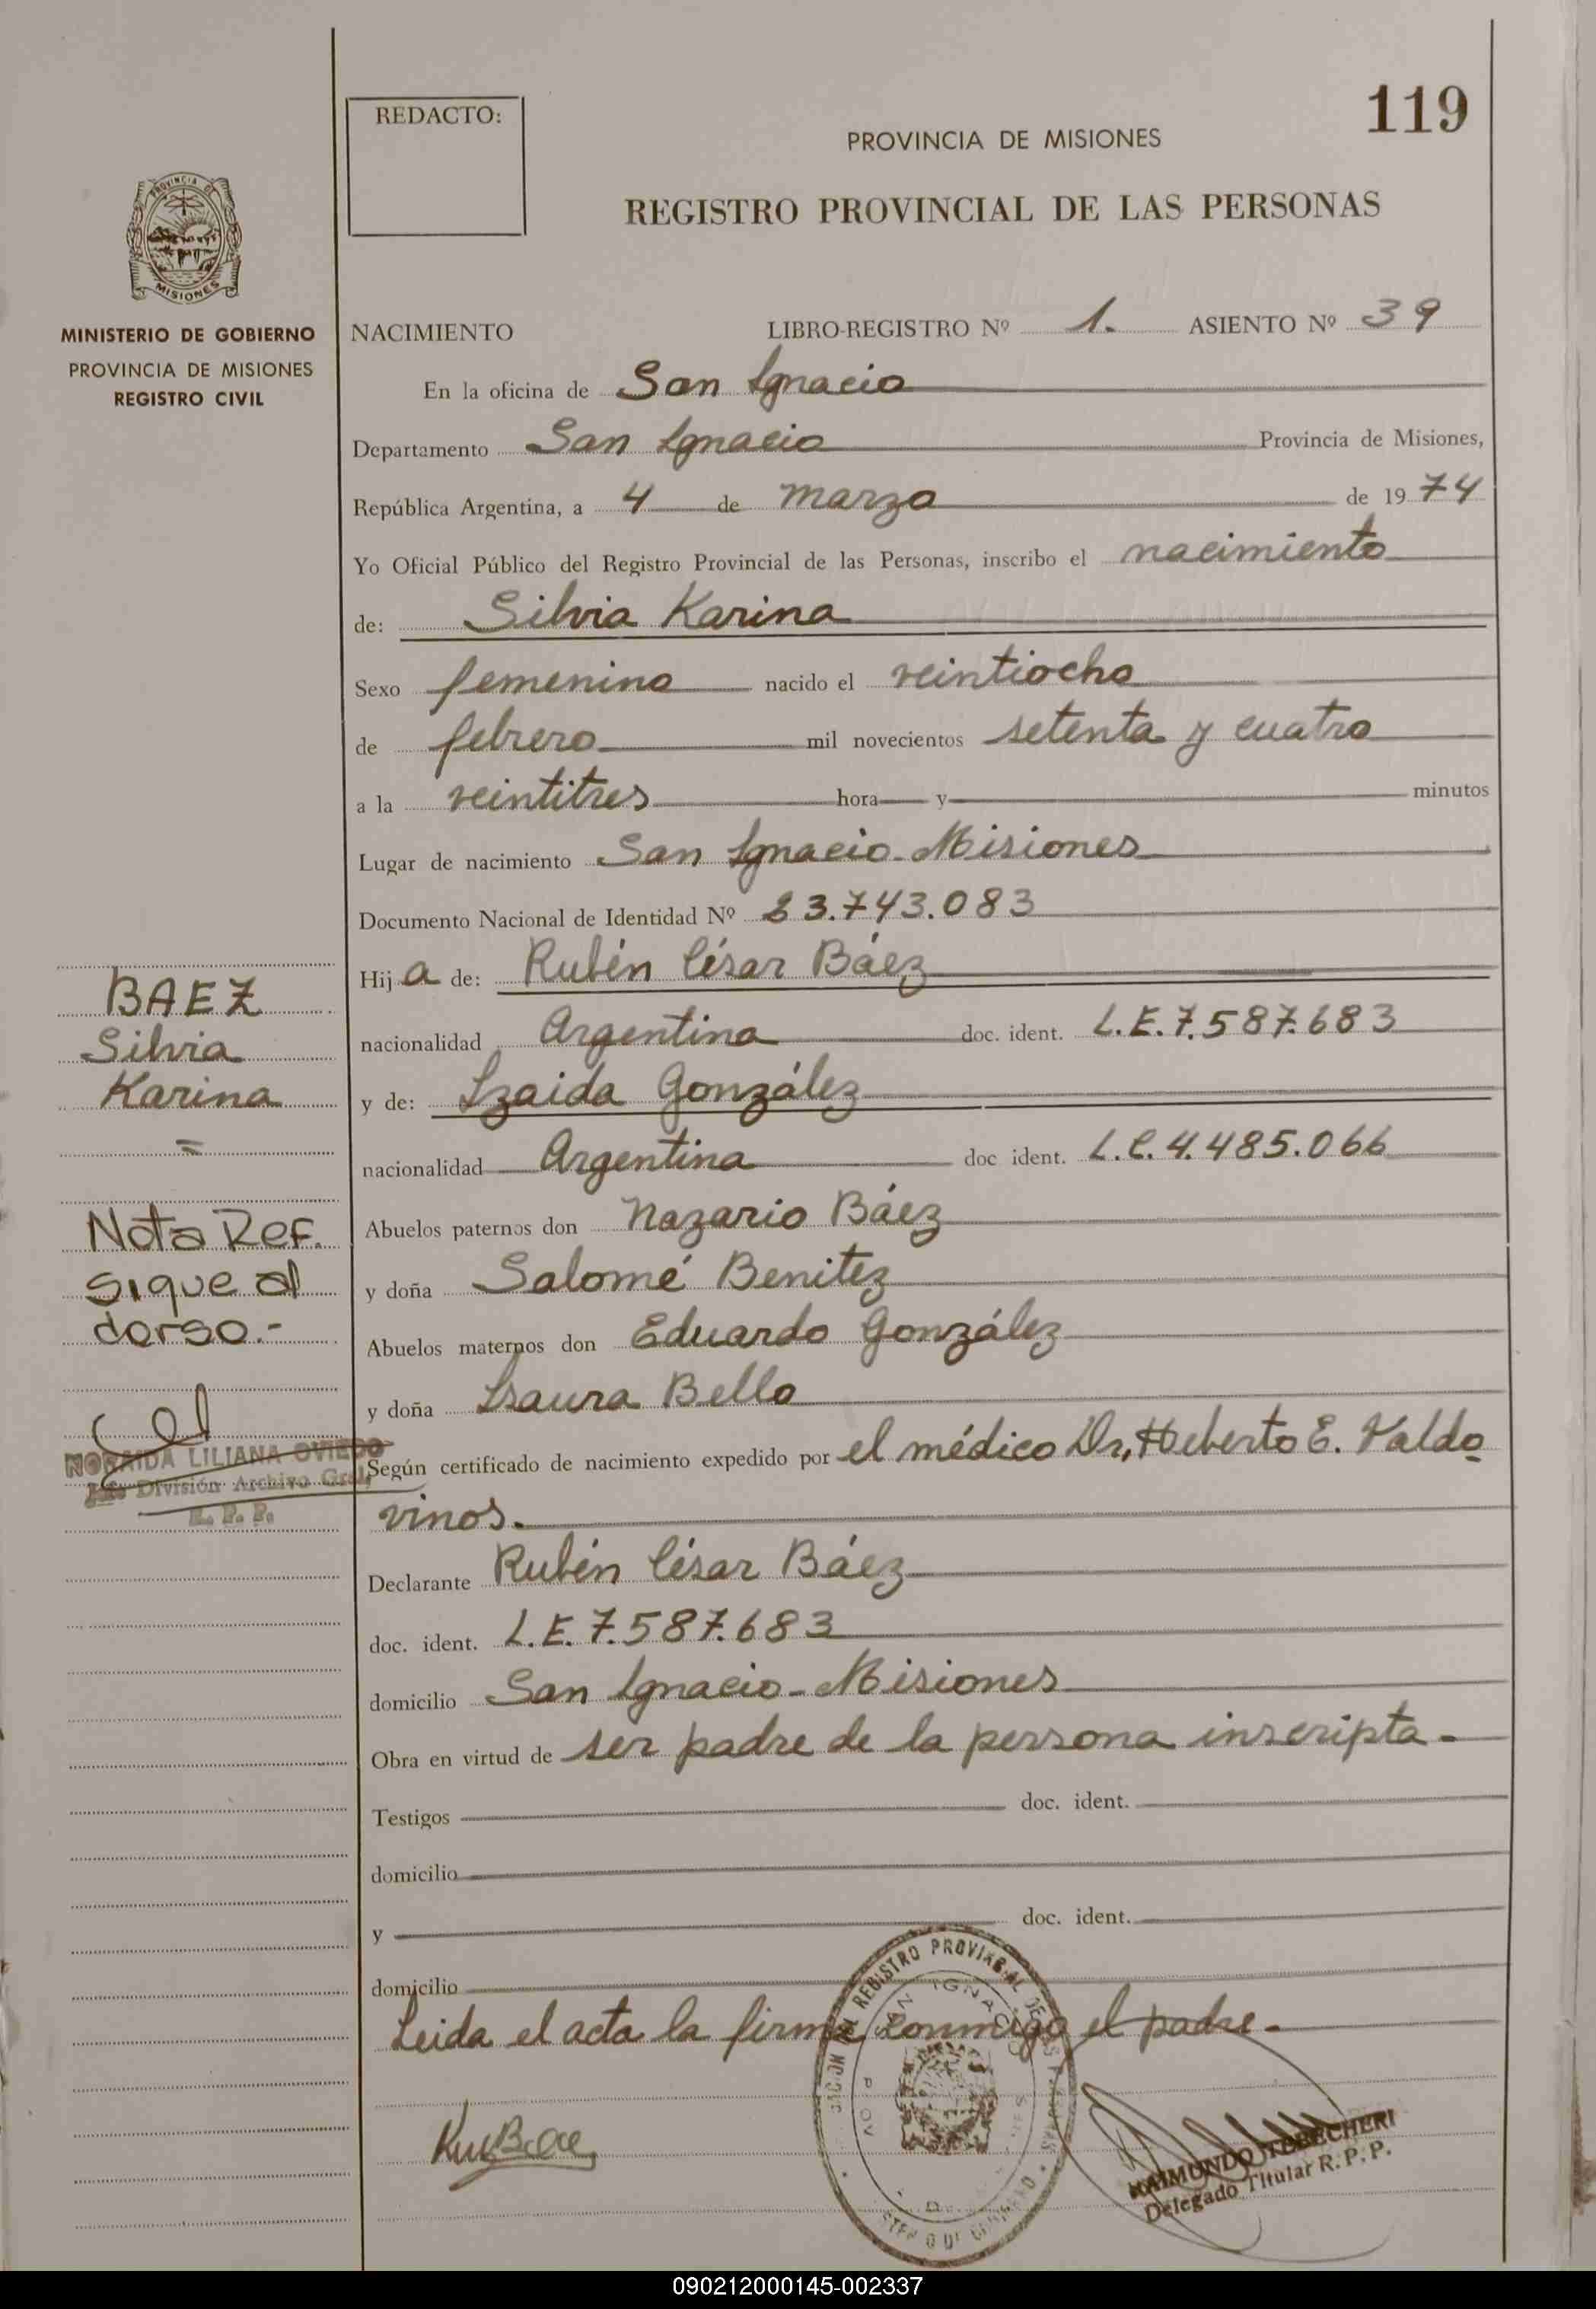 119
REDACTO:
PROVINCIA DE MISIONES
REGISTRO PROVINCIAL DE LAS PERSONAS
PROVINCIA DE
MISIONES
MINISTERIO DE GOBIERNO
PROVINCIA DE MISIONES
REGISTRO CIVIL
NACIMIENTO LIBRO-REGISTRO Nº 1. ASIENTO Nº 39
En la oficina de San Ignacio
Departamento San Ignacio Provincia de Misiones,
República Argentina, a 4 de marzo de 1974
Yo Oficial Público del Registro Provincial de las Personas, inscribo el nacimiento
de: Silvia Karina
Sexo femenino nacido el veintiocho
de febrero mil novecientos setenta y cuatro
a la veintitres hora y minutos
Lugar de nacimiento San Ignacio-Misiones
Documento Nacional de Identidad Nº 23.743.083
Hija de: Rubén César Báez
nacionalidad Argentina doc. ident. L.E.7.587.683
y de: Izaida González
nacionalidad Argentina doc ident. L.C.4.485.066
Abuelos paternos don Nazario Báez
y doña Salomé Benitez
Abuelos maternos don Eduardo González
y doña Isaura Bello
Según certificado de nacimiento expedido por el médico Dr, Heberto E. Valdo
vinos.
Declarante Rubén César Báez
doc. ident. L.E.7.587.683
domicilio San Ignacio-Misiones
Obra en virtud de ser padre de la persona inscripta-
Testigos doc. ident.
domicilio
y doc. ident.
domicilio
Leida el acta la firma conmigo el padre-
BAEZ
Silvia
Karina
=
Nota Ref.
sigue al
dorso.-
NORAIDA LILIANA OVIEDO
División Archivo Gral.
R. P. P.
REGISTRO PROVINCIAL DE LAS
SAN IGNACIO
RAIMUNDO
Delegado Titular R. P. P.
090212000145-002337